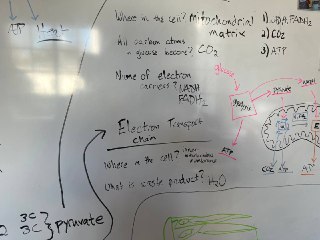 Where in the cell? Mitochondrial matrix
1) NADH, FADH2
2) CO2
3) ATP
All carbon atoms in glucose become? CO2
Name of electron carriers? NADH
FADH2
glucose
pyruvate
NADH
ATP
Electron Transport chain
Where in the cell? inner mitochondrial membrane
What is waste product? H2O
CO2
ATP
3C
3C
} pyruvate